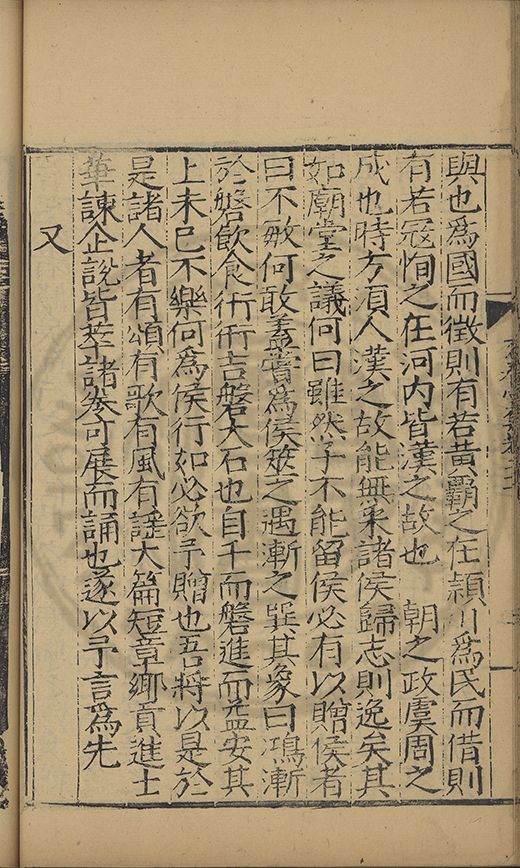 與也為國而徴則有若黃霸之在潁川為民而借則
有若寇恂之在河内皆漢之故也　朝之政虞周之
成也時方湏人漢之故能無采諸侯歸志則逸矣其
如廟堂之議何曰雖然子不能留侯必有以贈侯者
曰不敏何敢盖嘗為侯筮之遇漸之巽其象曰鴻漸
於磐飲食衎衎吉磐大石也自干而磐進而益安其
上未已不樂何為侯行如必欲予贈也吾將以是於
是諸人者有頌有歌有風有謡大篇短章鄉貢進士
華諫企說皆萃諸卷可展而誦也遂以予言為先
又